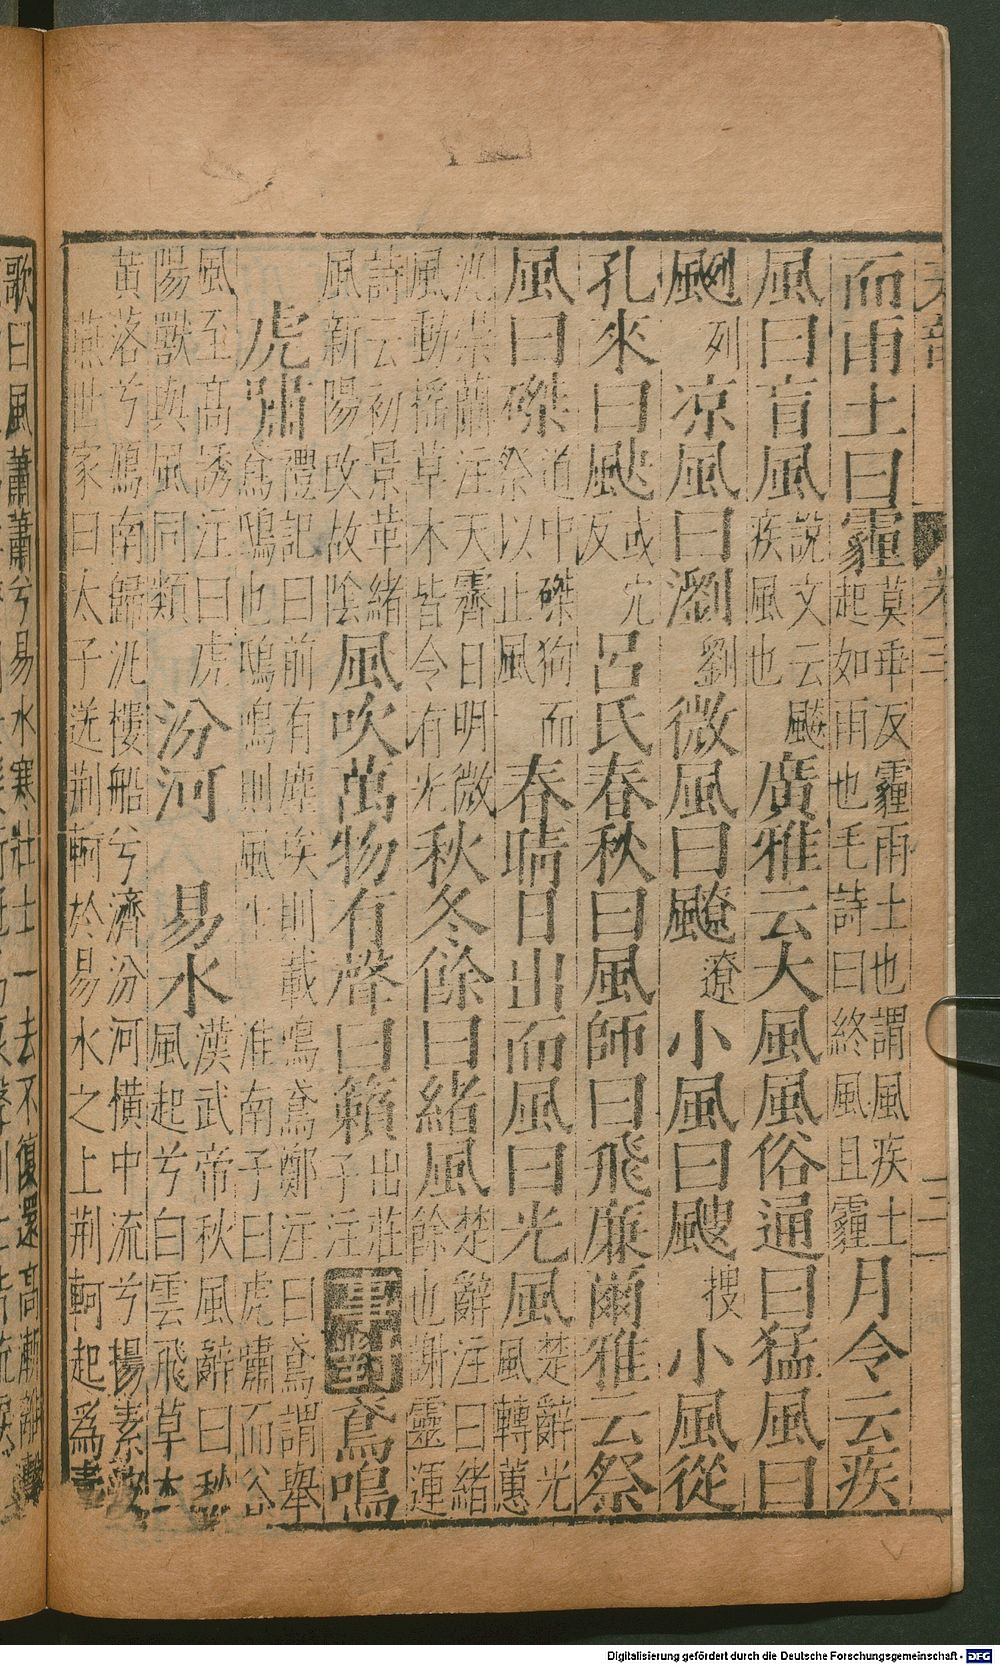 天部　卷三　三
而雨土曰霾莫乖反霾雨土也謂風疾土起如雨也毛詩曰終風且霾月令云疾
風曰盲風說文云飈疾風也廣雅云大風風俗通曰猛風曰
颲列凉風曰瀏劉微風曰飉遼小風曰颼搜小風從
孔來曰䬂或穴反呂氏春秋曰風師曰飛廉爾雅云祭
風曰磔道中磔狗而祭以止風春晴日出而風曰光風楚辭光風轉蕙
汎崇蘭注天霽日明微風動搖草木皆令有光秋冬餘曰緒風楚辭注曰緒餘也謝靈運
詩云初景革緒風新陽改故陰風吹萬物有聲曰籟出莊子注事對鳶鳴
虎嘯禮記曰前有塵埃則載鳴鳶鄭注曰鳶謂舉鳶鳴也鳶鳴則風生淮南子曰虎嘯而谷
風至高誘注曰虎陽獸與風同類汾河易水漢武帝秋風辭曰秋風起兮白雲飛草木
黃落兮鴈南歸汎樓船兮濟汾河橫中流兮揚素波燕世家曰太子送荊軻於易水之上荊軻起爲壽
歌曰風蕭蕭兮易水寒壯士一去不復還高漸離擊
Digitalisierung gefördert durch die Deutsche Forschungsgemeinschaft - DFG